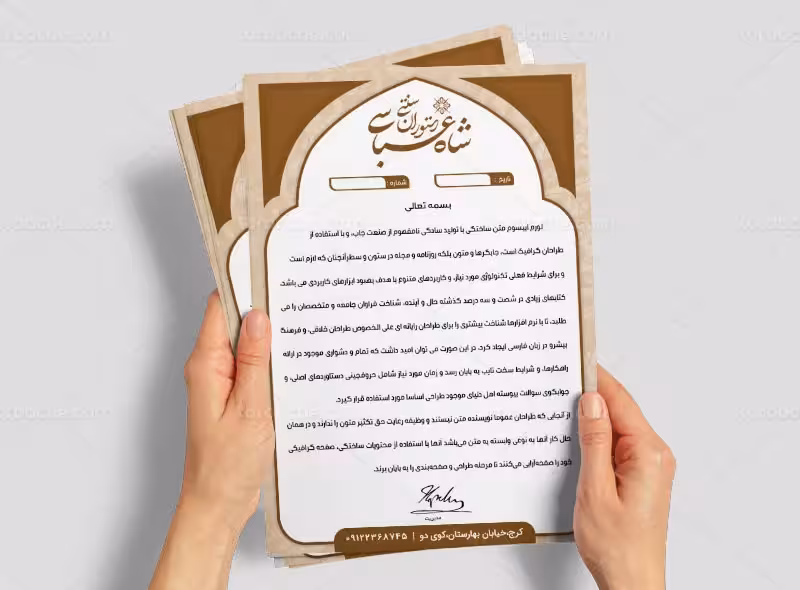 رستوران سنتی
شاه عباسی
تاریخ :
شماره :
بسمه تعالی
لورم ایپسوم متن ساختگی با تولید سادگی نامفهوم از صنعت چاپ، و با استفاده از
طراحان گرافیک است، چاپگرها و متون بلکه روزنامه و مجله در ستون و سطرآنچنان که لازم است
و برای شرایط فعلی تکنولوژی مورد نیاز، و کاربردهای متنوع با هدف بهبود ابزارهای کاربردی می باشد،
کتابهای زیادی در شصت و سه درصد گذشته حال و آینده، شناخت فراوان جامعه و متخصصان را می
طلبد، تا با نرم افزارها شناخت بیشتری را برای طراحان رایانه ای علی الخصوص طراحان خلاقی، و فرهنگ
پیشرو در زبان فارسی ایجاد کرد، در این صورت می توان امید داشت که تمام و دشواری موجود در ارائه
راهکارها، و شرایط سخت تایپ به پایان رسد و زمان مورد نیاز شامل حروفچینی دستاوردهای اصلی، و
جوابگوی سوالات پیوسته اهل دنیای موجود طراحی اساسا مورد استفاده قرار گیرد.
از آنجایی که طراحان عموما نویسنده متن نیستند و وظیفه رعایت حق تکثیر متون را ندارند و در همان
حال کار آنها به نوعی وابسته به متن می‌باشد آنها با استفاده از محتویات ساختگی، صفحه گرافیکی
خود را صفحه‌آرایی می‌کنند تا مرحله طراحی و صفحه‌بندی را به پایان برند.
مدیریت
کرج،خیابان بهارستان،کوی دو | ۰۹۱۲۲۳۶۸۷۴۵